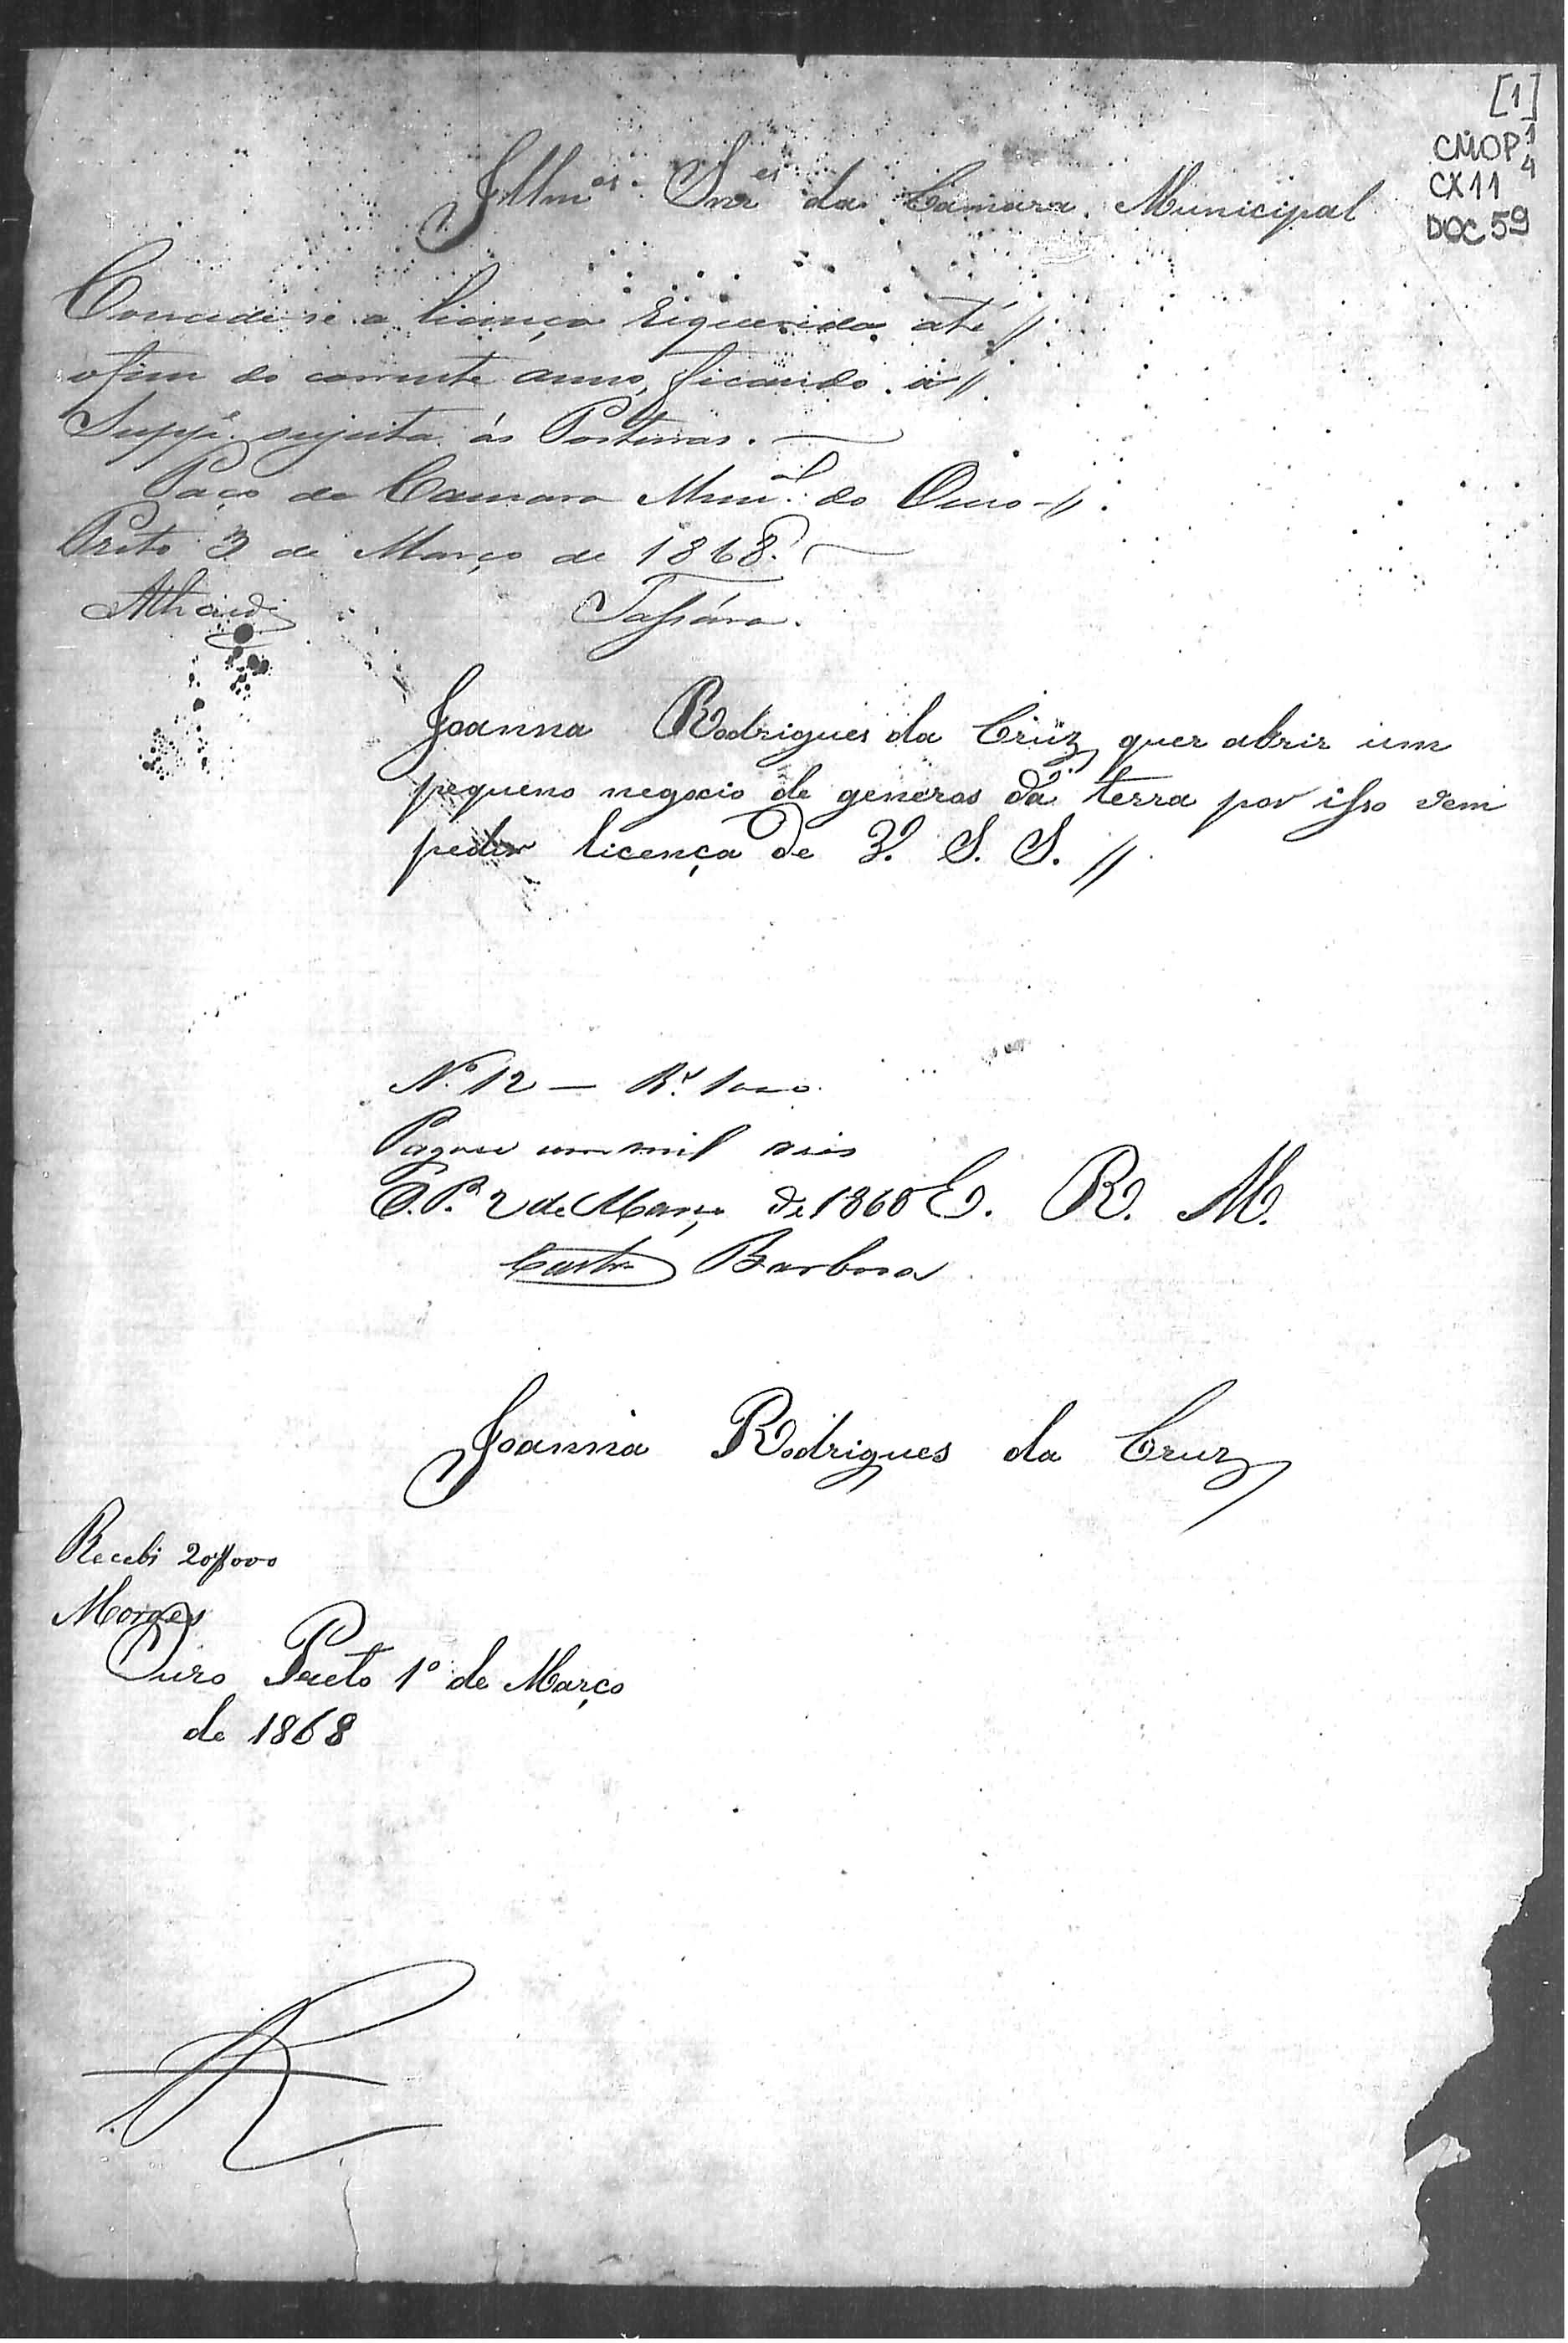 [1]
CMOP 1
4
CX11
DOC 59
Illmos. Snres da Camara Municipal
Concede-se a licença requerida até //
o fim do corrente anno, ficando a //
Suppe. sujeita ás Posturas.
Paço da Camara Munal. do Ouro- //
Preto 3 de Março de 1868.
Joanna Rodrigues da Cruz quer abrir um
pequeno negocio de generos da terra por isso vem
pedir licença de V. S. S. //
No. 12 — Rs. 1000
Pagou um mil reis
O. P. 2 de Março de 1868
E. R. M.
Castro Barbosa
Joanna Rodrigues da Cruz
Recebi 20$000
Moraes
Ouro Preto 1o de Março
de 1868